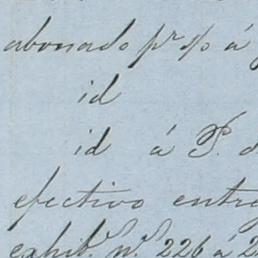 abonado pr. %o á
id
id á P. d
efectivo entre
exhib.s n.s 226 á 2